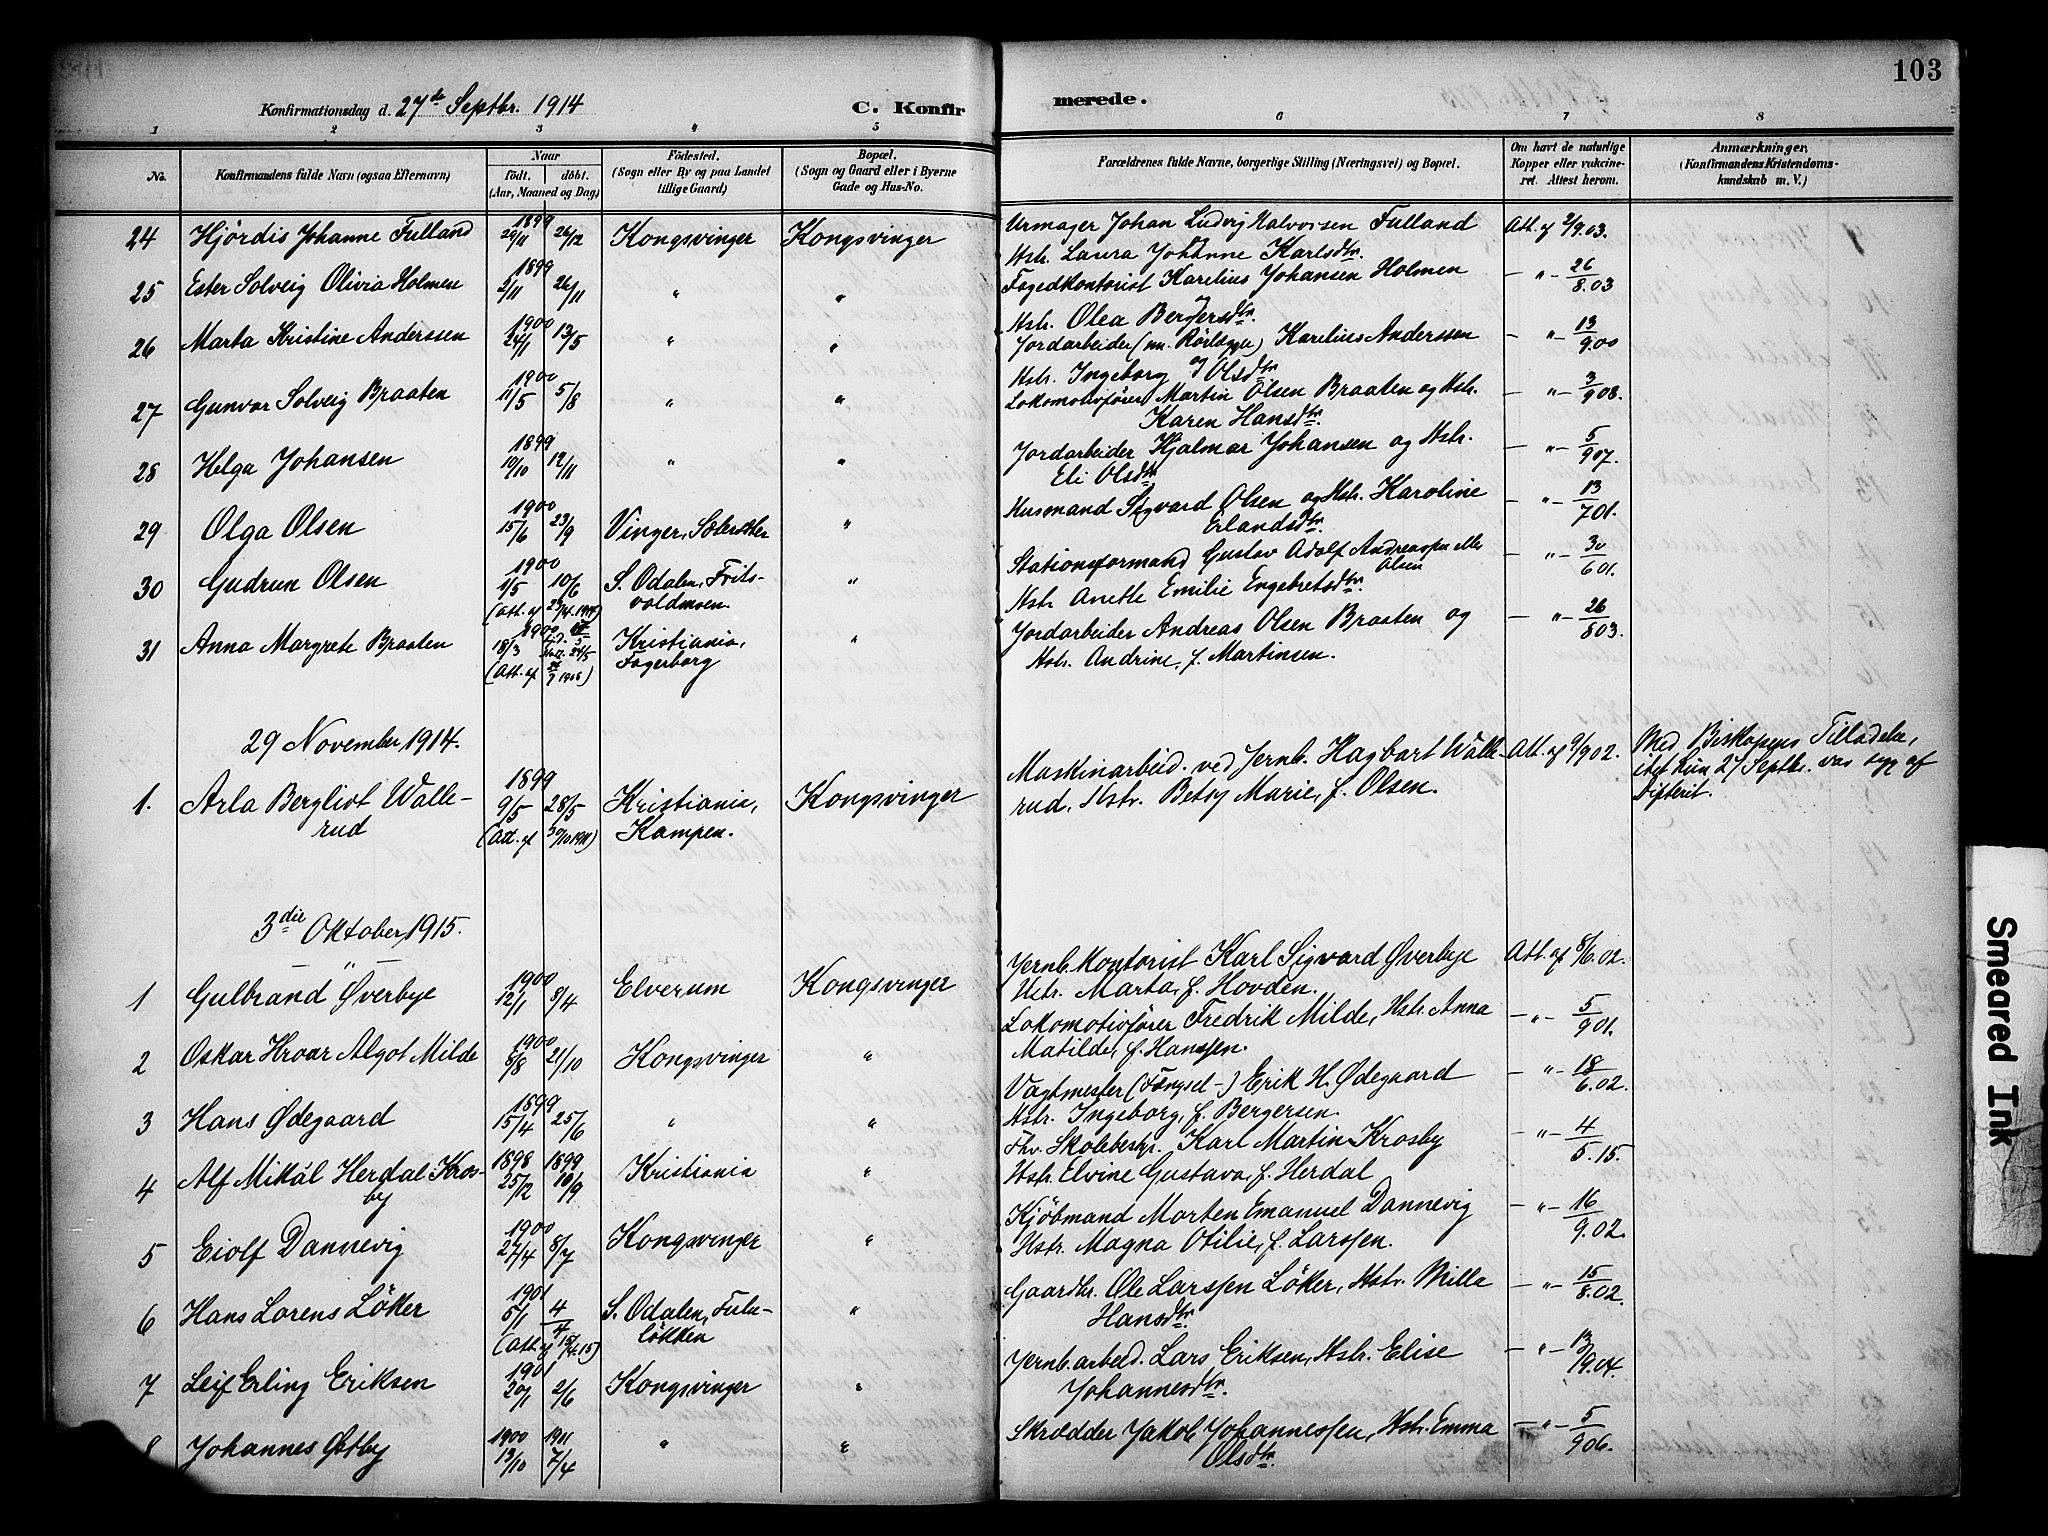 103
Konfirmationsdag d. 27de Septbr. 1914 C. Konfir merede.
1 2 3 4 5 6 7 8
No. Konfirmandens fulde Navn (ogsaa Efternavn) Naar födt. döbt. (Aar, Maaned og Dag) Födested. (Sogn eller By og paa Landet tillige Gaard) Bopæl. (Sogn og Gaard eller i Byerne Gade og Hus-No. Forældrenes fulde Navne, borgerlige Stilling (Næringsvei) og Bopæl. Om havt de naturlige Kopper eller vakcineret. Attest herom. Anmærkninger, (Konfirmandens Kristendomskundskab m. V.)
24 Hjördis Johanne Fulland 1899 29/11 26/12 Kongsvinger Kongsvinger Urmager Johan Ludvig Halvorsen Fulland Att. af 2/9.03.
Hstr. Laura Johanne Karlsdtr.
25 Ester Solveig Olivia Holmen 1899 2/11 26/11 " " Fogedkontorist Karelius Johansen Holmen – " – 26/8.03
Hstr. Olea Bergersdtr.
26 Marta Kristine Anderssen 1900 24/1 13/5 " " Jordarbeider (nu Rörlægger) Karelius Anderssen – " – 13/9.00
og Hstr. Ingeborg Olsdtr
27 Gunvor Solveig Braaten 1900 11/5 5/8 " " Lokomotivförer Martin Olsen Braaten og Hstr. – " – 3/908.
Karen Hansdtr.
28 Helga Johansen 1899 19/10 12/11 " " Jordarbeider Hjalmar Johansen og Hstr. – " – 5/907.
Eli Olsdtr
29 Olga Olsen 1900 15/6 23/9 Vinger, " Husmand Sigvard Olsen og Hstr. Karoline – " – 13/701.
Erlandsdtr.
30 Gudrun Olsen 1900 1/5 10/6 S. Odalen, Frits- " Stationsformand Gustav Adolf Andreassen eller Olsen – " – 30/601.
(Att. af 23/4.1914) voldmoen. Hstr Anette Emilie Engebretsdtr
31 Anna Margrete Braaten 1900 18/3 24/5 Kristiania, " Jordarbeider Andreas Olsen Braaten og – " – 26/803.
(Att. af Fagerborg Hstr. Andrine, f. Martinsen.
29 November 1914.
1. Arla Bergliot Walle- 1899 9/5 28/5 Kristiania, Kongsvinger Maskinarbeid. ved Jernb. Hagbart Walle- Att. af 9/902. Med Biskopens Tilladelse,
rud (Att. af 30/10 1911) Kampen. rud. Hstr. Betsy Marie, f. Olsen. idet hun 27 Septbr. var syg af
Difterit.
3die Oktober 1915.
– " –
1 Gulbrand Øverbye 1900 12/1 8/4 Elverum Kongsvinger Jernb. Kontorist Karl Sigvard Øverbye Att. af 8/6.02.
Hstr. Marta, f. Hovden.
2 Oskar Hroar Algot Milde 1900 8/8 21/10 Kongsvinger " Lokomotivförer Fredrik Milde, Hstr. Anna – " – 5/901.
Matilde, f. Hanssen.
3 Hans Ødegaard 1899 15/4 25/6 " " Vagtmester (Fængsel-) Erik H. Ødegaard – " – 18/6.02.
Hstr. Ingeborg, f. Bergersen.
4 Alf Mikál Herdal Kros- 1898 25/12 1899 10/9 Kristiania " Fhv. Skolebestyr. Karl Martin Krosby – " – 4/5.15.
by Hstr Elvine Gustava, f. Herdal
5 Eiolf Dannevig 1900 27/4 8/7 Kongsvinger " Kjöbmand Morten Emanuel Dannevig – " – 16/9.02.
Hstr. Magna Otilie, f. Larssen.
6 Hans Lorens Löker 1901 5/1 4/4 S. Odalen, Fulu- " Gaardbr. Ole Larssen Löker, Hstr. Milla – " – 15/8.02.
(Att. af 15/4.15) lökken Hansdtr.
7 Leif Erling Eriksen 1901 20/1 2/6 Kongsvinger " Jernb. arbeid. Lars Eriksen, Hstr. Elise – " – 13/9.04.
Johannesdtr.
8 Johannes Østby 1900 13/10 1911 7/4 " " Skrædder Jakob Johannessen, Hstr. Emma – " – 5/906.
Olsdtr.
Smeared Ink